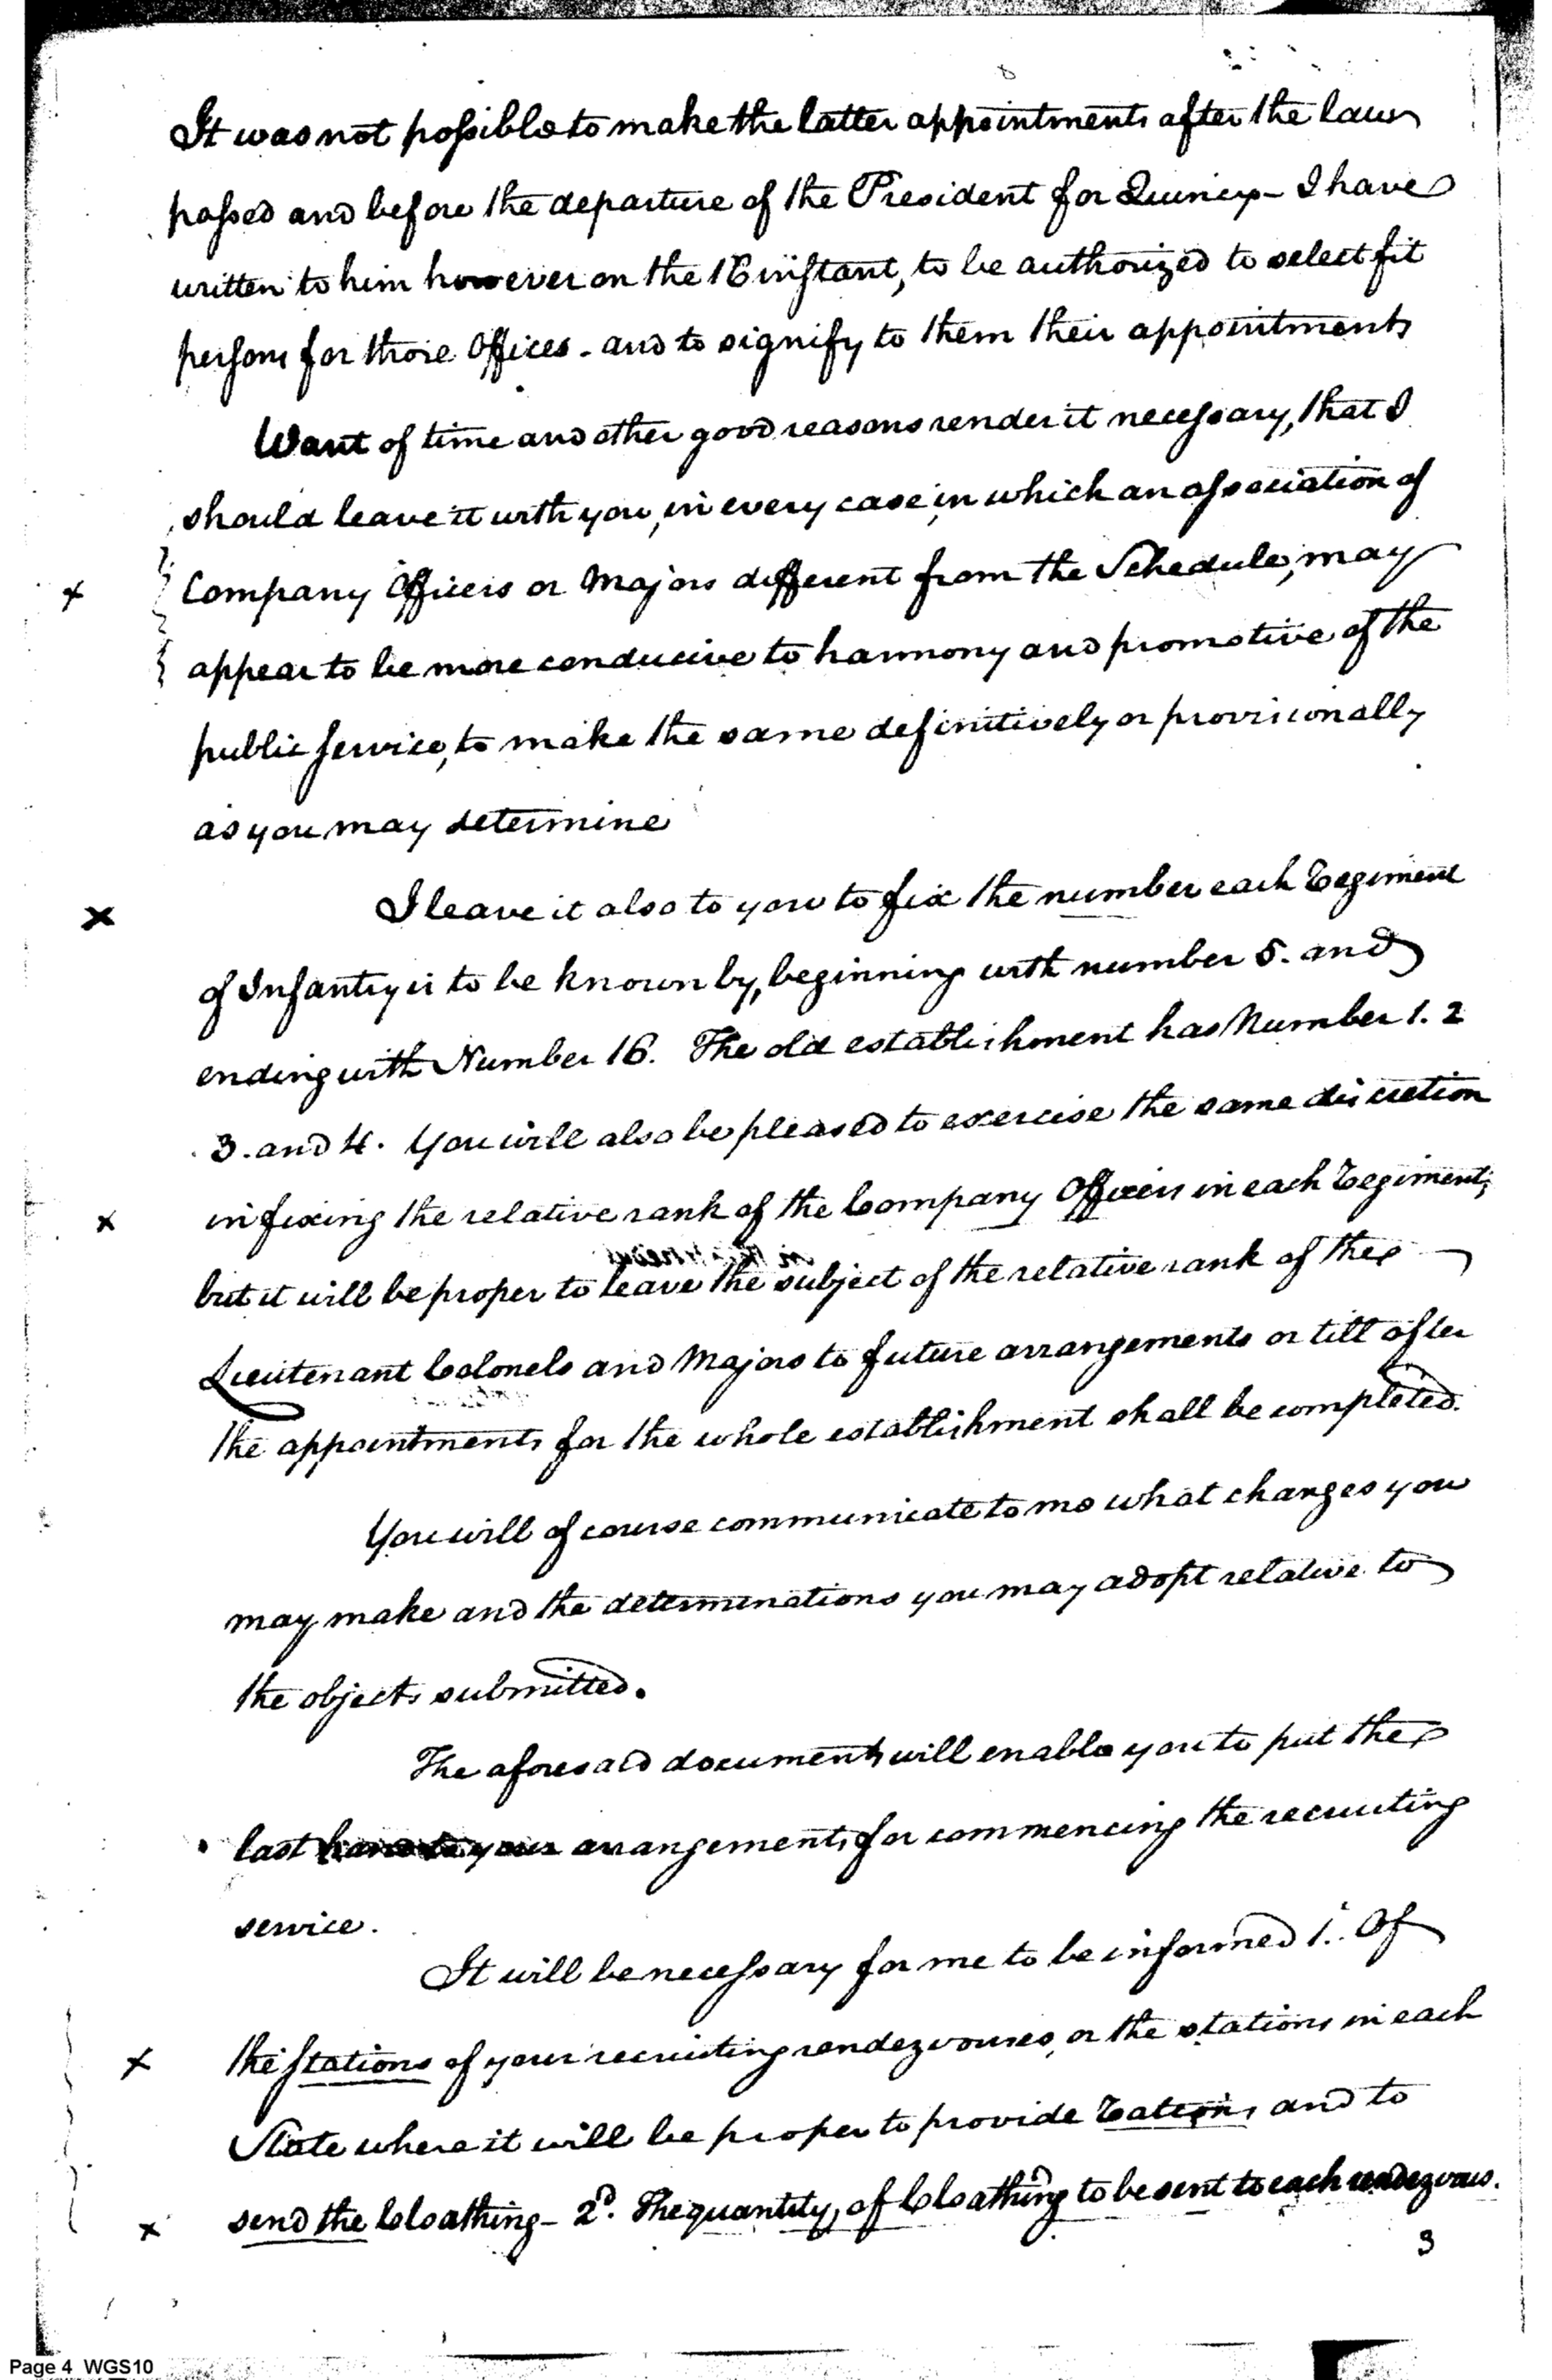 It was not possible to make the latter appointments after the laws
passed and before the departure of the President for Quincy - I have
written to him however on the 16 instant, to be authorized to select fit
persons for those Offices - and to signify to them their appointments
Want of time and other good reasons render it necessary, that I
should leave it with you, in every case, in which an association of
x Company Officers or Majors different from the Schedule, may
appear to be more conducive to harmony and promotive of the
public service, to make the same definitively or provisionally
as you may determine
x I leave it also to you to fix the number each Regiment
of Infantry is to be known by, beginning with number 5. and
ending with Number 16. The old establishment has Number 1. 2
3. and 4. You will also be pleased to exercise the same discretion
x in fixing the relative rank of the Company Officers in each Regiment;
but it will be proper to leave the subject of the relative rank of the
Lieutenant Colonels and Majors to future arrangements or till after
the appointments for the whole establishment shall be completed.
You will of course communicate to me what changes you
may make and the determinations you may adopt relative to
the objects submitted.
The aforesaid documents will enable you to put the
last hand to your arrangements for commencing the recruiting
service.
It will be necessary for me to be informed 1. Of
x the stations of your recruiting rendezvouses, or the stations in each
State where it will be proper to provide Rations and to
x send the Cloathing - 2d. The quantity, of Cloathing to be sent to each rendezvous.
3
Page 4 WGS10